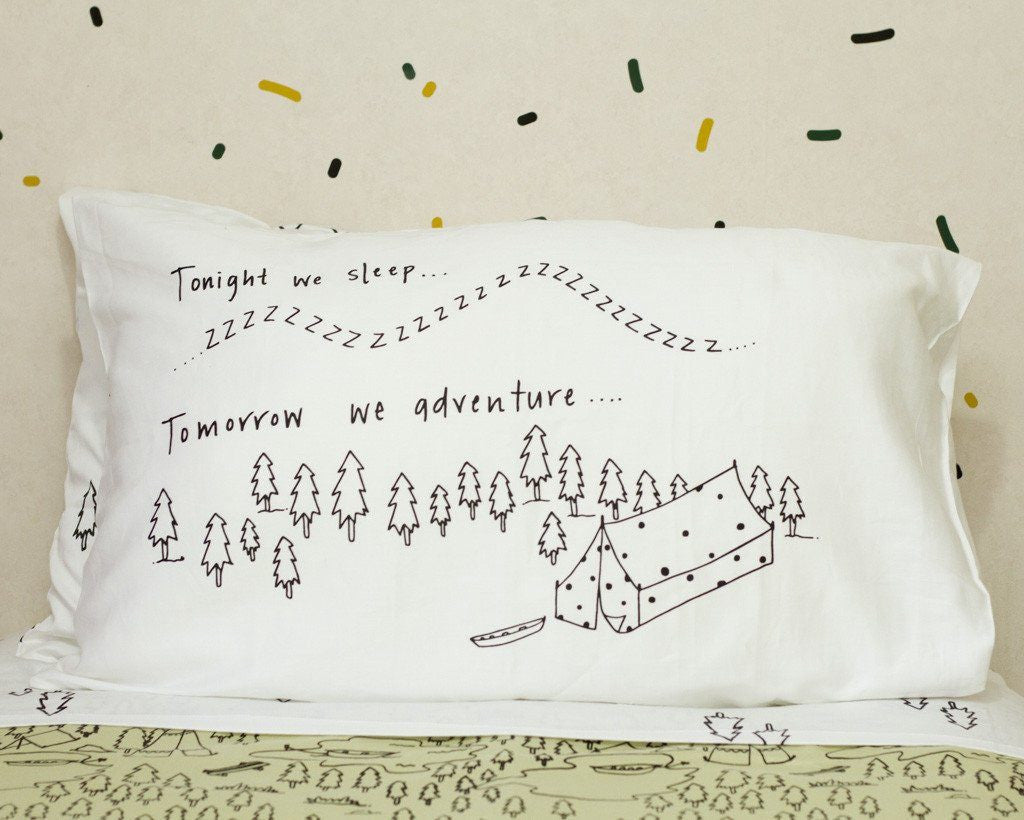 Tonight we sleep...
.....zzzzzzzzzzzzzzzzzzzzzzzzzzzzz....
Tomorrow we adventure....